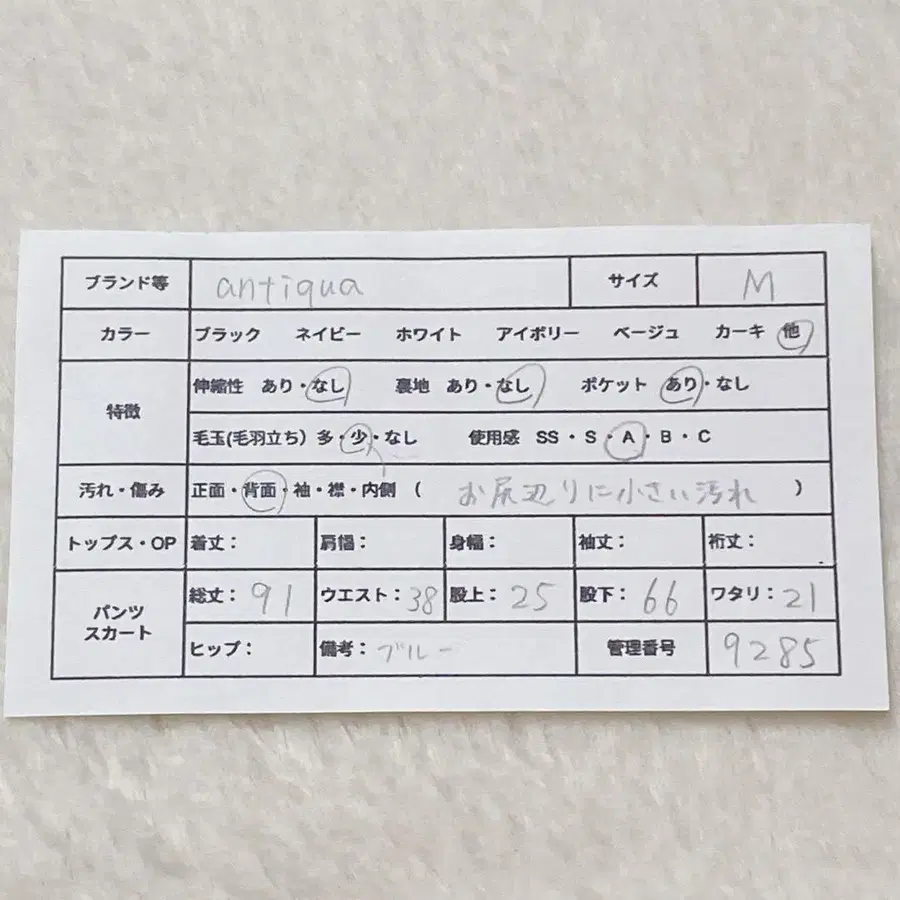 ブランド等 antiqua サイズ M
カラー ブラック ネイビー ホワイト アイボリー ベージュ カーキ 他
特徴
伸縮性 あり・なし 裏地 あり・なし ポケット あり・なし
毛玉(毛羽立ち) 多・少・なし 使用感 SS・S・A・B・C
汚れ・傷み 正面・背面・袖・襟・内側 ( お尻辺りに小さい汚れ )
トップス・OP 着丈: 肩幅: 身幅: 袖丈: 裄丈:
パンツ
スカート
総丈:91 ウエスト:38 股上:25 股下:66 ワタリ:21
ヒップ: 備考:ブルー 管理番号 9285